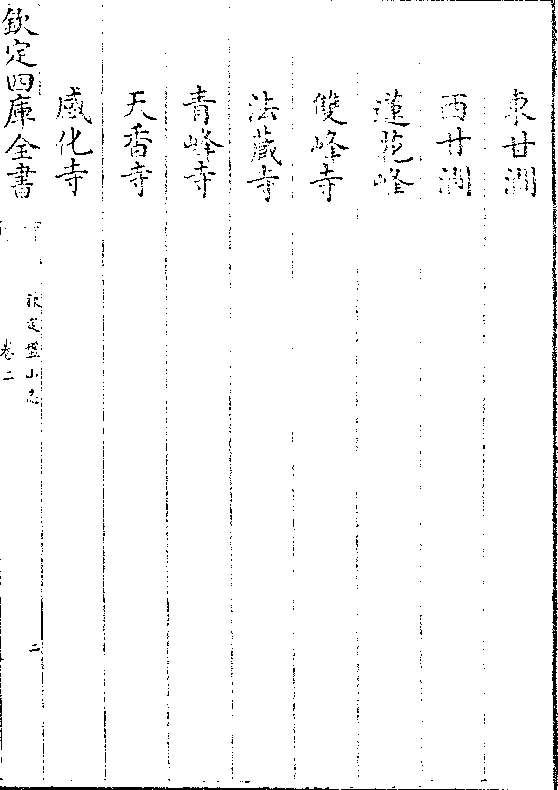 東甘澗
西甘澗
蓮花峰
雙峰寺
法藏寺
青峰寺
天香寺
感化寺
欽定四庫全書
欽定盤山志
卷二
二